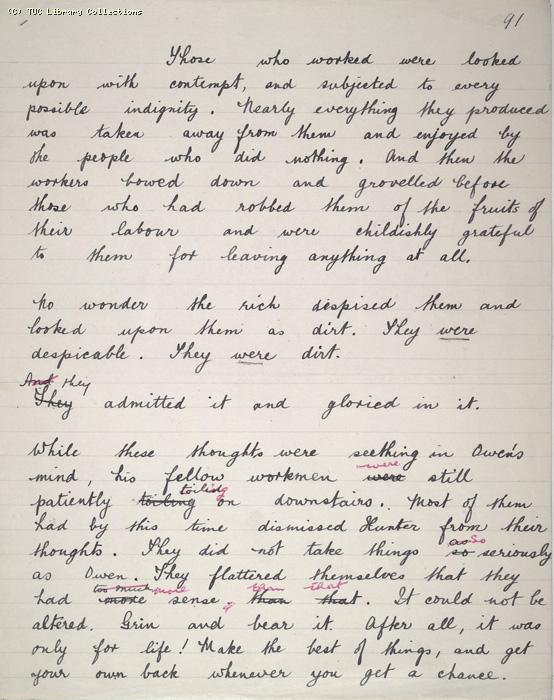 (C) TUC Library Collections
91
Those who worked were looked
upon with contempt, and subjected to every
possible indignity. Nearly everything they produced
was taken away from them and enjoyed by
the people who did nothing. And then the
workers bowed down and grovelled before
those who had robbed them of the fruits of
their labour and were childishly grateful
to them for leaving anything at all.
No wonder the rich despised them and
looked upon them as dirt. They were
despicable. They were dirt.
And they
They admitted it and gloried in it.
While these thoughts were seething in Owen's
were
mind, his fellow workmen were still
toiling
patiently toiling on downstairs. Most of them
had by this time dismissed Hunter from their
as so
thoughts. They did not take things so seriously
as Owen. They flattered themselves that they
too much more than that
had more sense than that. It could not be
altered. Grin and bear it. After all, it was
only for life! Make the best of things, and get
your own back whenever you get a chance.